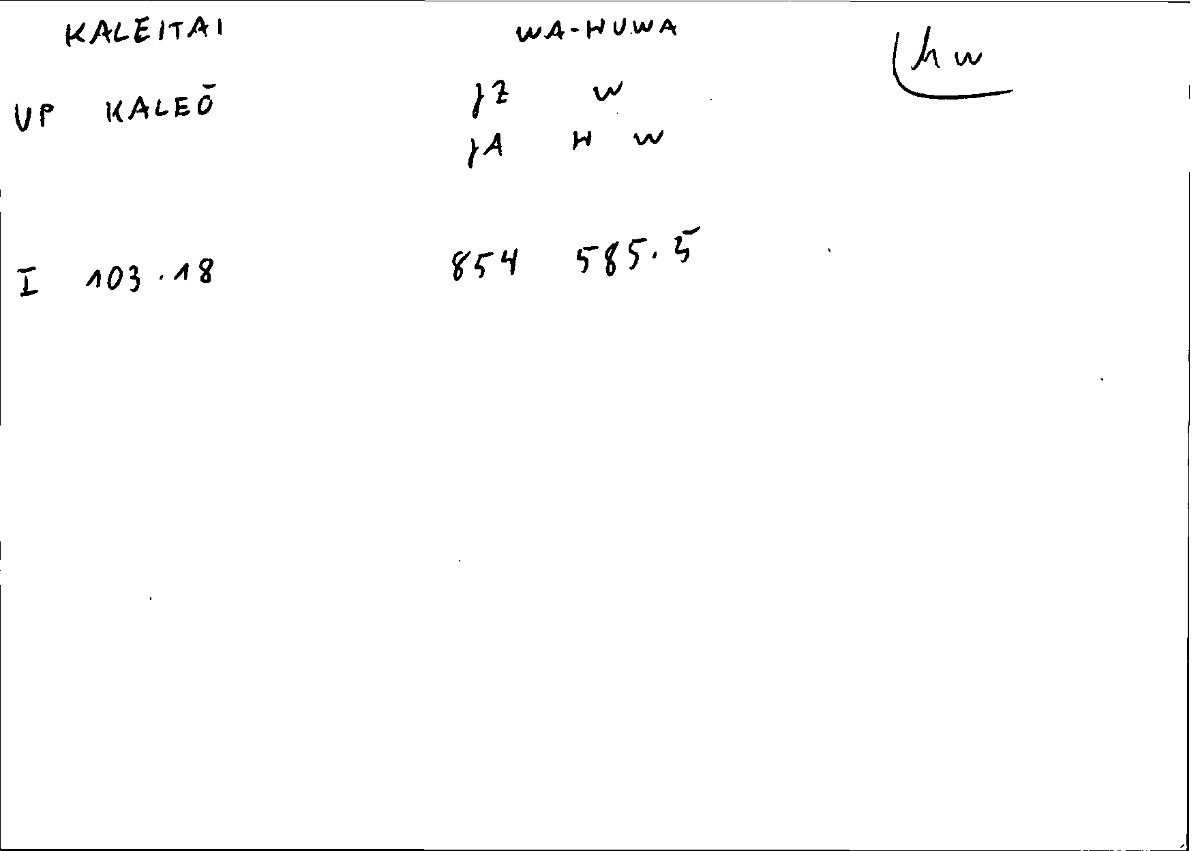 KALEITAI WA-HUWA hw
UP KALEŌ ɟZ W
ɟA H W
I 103.18 854 585.5